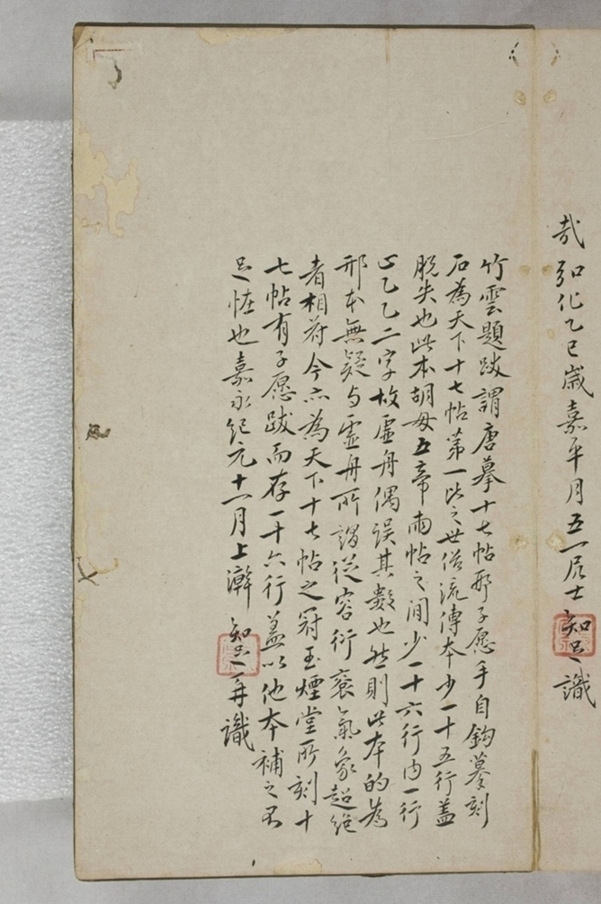 哉弘化乙巳嵗嘉平月五一居士知足識
竹雲題跋謂唐摹十七帖邢子愿手自鈎摹刻
石為天下十七帖第一比之世俗流傳本少一十五行蓋
脫失也此本胡毋五帝兩帖之間少一十六行内一行
止乙乙二字故虛舟偶誤其數也然則此本的為
邢本無疑与虛舟所謂從容衍裔氣象超絶
者相符今亦為天下十七帖之冠玉煙堂所刻十
七帖有子愿跋而存一十六行蓋以他本補之不
足恠也嘉永紀元十一月上澣知足再識